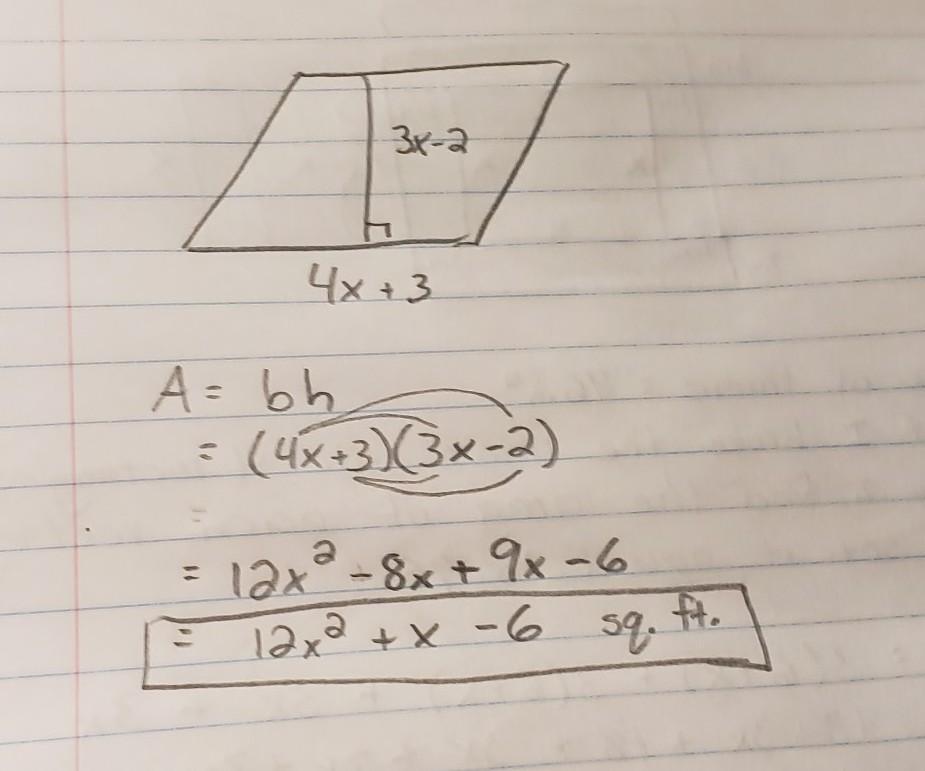 3x-2
4x + 3
A = bh
= (4x+3)(3x-2)
=
= 12x² - 8x + 9x - 6
= 12x² + x - 6 sq. ft.